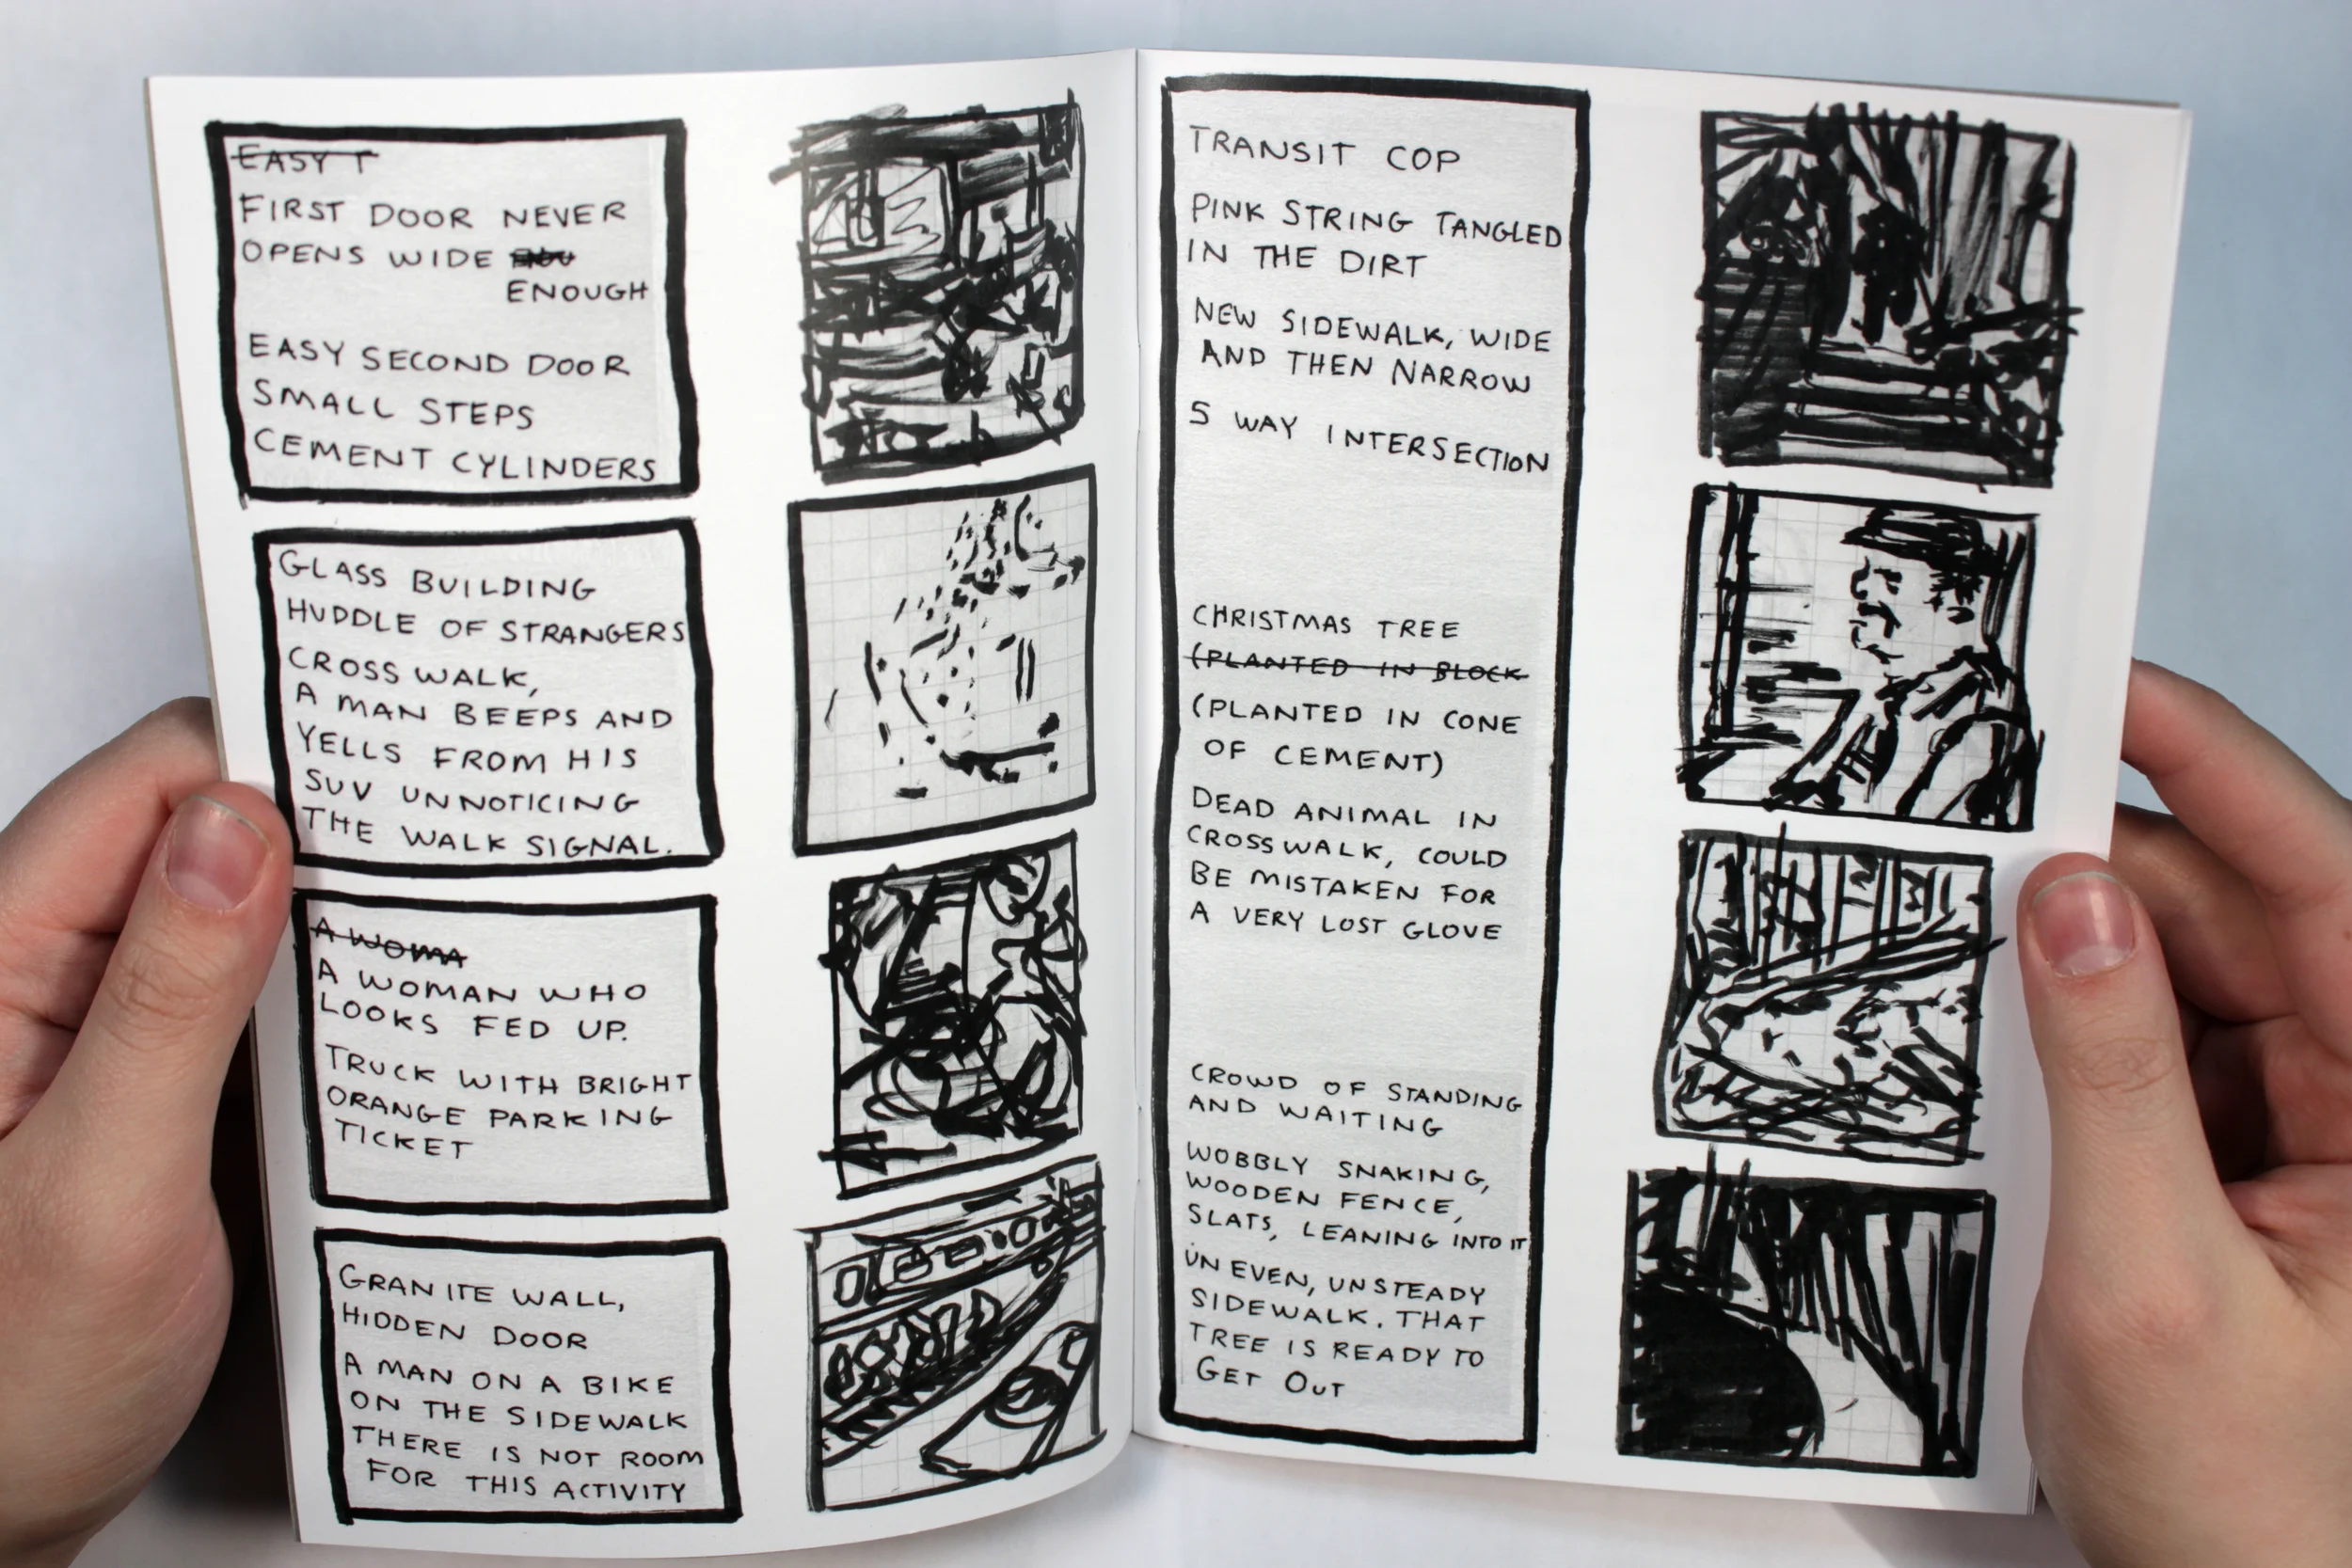 EASY T
FIRST DOOR NEVER
OPENS WIDE ENOU
ENOUGH
EASY SECOND DOOR
SMALL STEPS
CEMENT CYLINDERS
GLASS BUILDING
HUDDLE OF STRANGERS
CROSSWALK,
A MAN BEEPS AND
YELLS FROM HIS
SUV UNNOTICING
THE WALK SIGNAL.
A WOMA
A WOMAN WHO
LOOKS FED UP.
TRUCK WITH BRIGHT
ORANGE PARKING
TICKET
GRANITE WALL,
HIDDEN DOOR
A MAN ON A BIKE
ON THE SIDEWALK
THERE IS NOT ROOM
FOR THIS ACTIVITY
TRANSIT COP
PINK STRING TANGLED
IN THE DIRT
NEW SIDEWALK, WIDE
AND THEN NARROW
5 WAY INTERSECTION
CHRISTMAS TREE
(PLANTED IN BLOCK
(PLANTED IN CONE
OF CEMENT)
DEAD ANIMAL IN
CROSSWALK, COULD
BE MISTAKEN FOR
A VERY LOST GLOVE
CROWD OF STANDING
AND WAITING
WOBBLY SNAKING,
WOODEN FENCE,
SLATS, LEANING INTO IT
UNEVEN, UNSTEADY
SIDEWALK. THAT
TREE IS READY TO
GET OUT